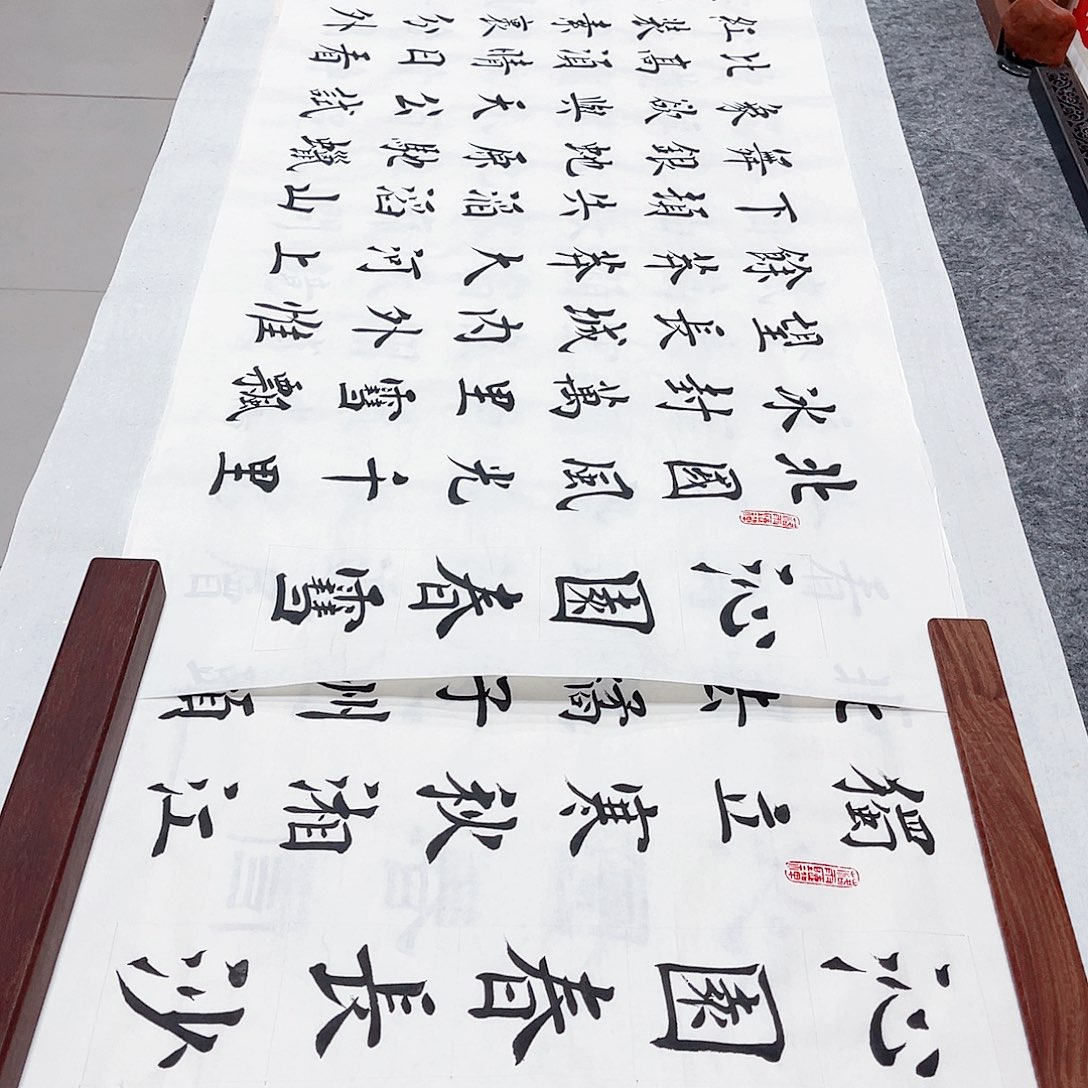 沁園春長沙
獨立寒秋湘江
北去橘子洲頭
沁園春雪
北國風光千里
冰封萬里雪飄
望長城內外惟
餘莽莽大河上
下頓失滔滔山
舞銀蛇原馳蠟
象欲與天公試
比高須晴日看
紅裝素裹分外